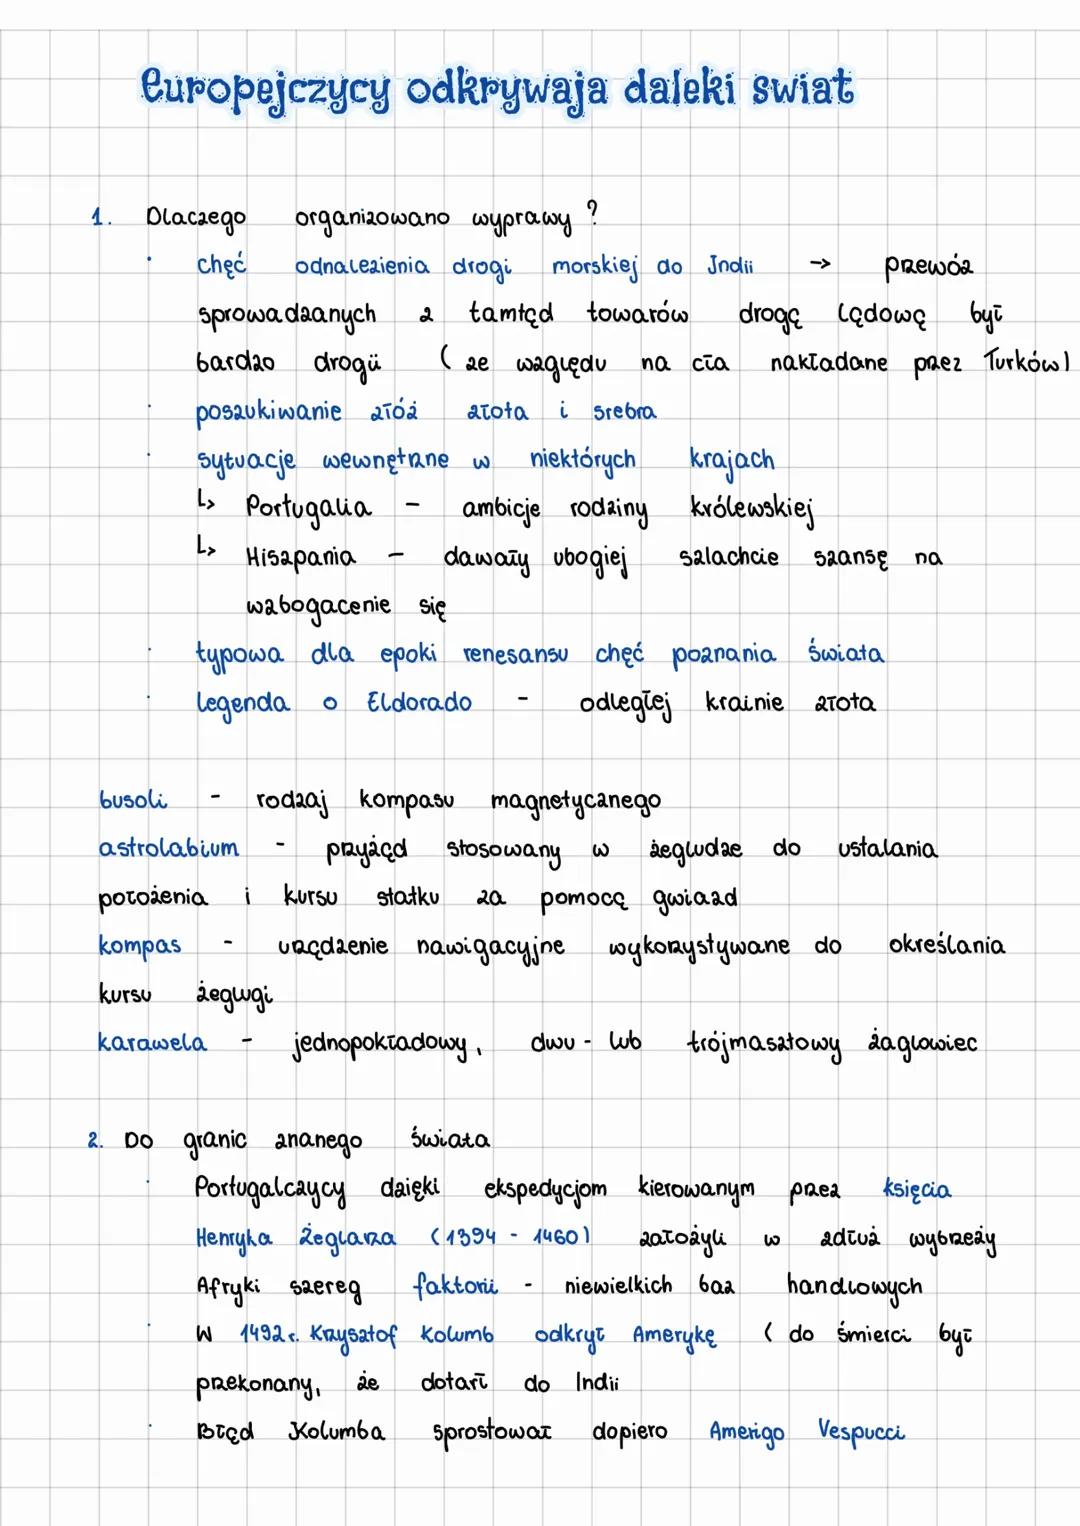 Europejczycy odkrywaja daleki swiat
1. Dlaczego organizowano wyprawy ?
· chęć odnalezienia drogi morskiej do Indii -> przewóz
sprowadzanych z tamtąd towarów drogą lądową był
bardzo drogii ( ze względu na cła nakładane przez Turków)
· poszukiwanie złóż złota i srebra
· sytuacje wewnętrzne w niektórych krajach
↳ Portugalia - ambicje rodziny królewskiej
↳ Hiszpania - dawały ubogiej szlachcie szansę na
wzbogacenie się
· typowa dla epoki renesansu chęć poznania świata
· legenda o Eldorado - odległej krainie złota
busoli - rodzaj kompasu magnetycznego
astrolabium - przyżąd stosowany w żegludze do ustalania
położenia i kursu statku za pomocą gwiazd
kompas - urządzenie nawigacyjne wykorzystywane do określania
kursu żeglugi
karawela - jednopokładowy, dwu- lub trójmasztowy żaglowiec
2. Do granic znanego świata
· Portugalczycy dzięki ekspedycjom kierowanym przez księcia
Henryka Żeglarza (1394 - 1460) założyli w zdłuż wybrzeży
Afryki szereg faktorii - niewielkich baz handlowych
· W 1492 r. Krzysztof Kolumb odkrył Amerykę ( do śmierci był
przekonany, że dotarł do Indii
· Błąd Kolumba sprostował dopiero Amerigo Vespucci